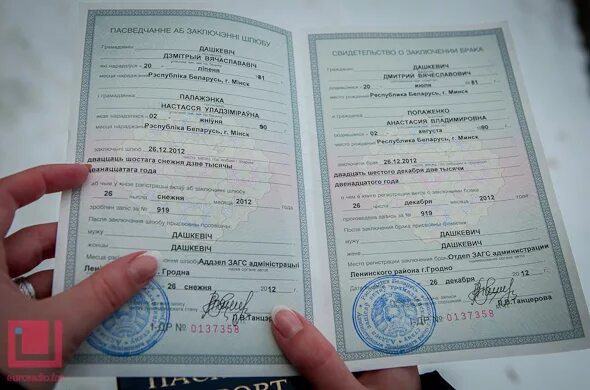 ПАСВЕДЧАННЕ АБ ЗАКЛЮЧЭННІ ШЛЮБУ
Грамадзянін ДАШКЕВІЧ
ДЗМІТРЫЙ ВЯЧАСЛАВАВІЧ
які нарадзіўся 20 ліпеня 81
месца нараджэння Рэспубліка Беларусь, г. Мінск
і грамадзянка ПАЛАЖЭНКА
НАСТАССЯ УЛАДЗІМІРАЎНА
якая нарадзілася 02 жніўня 90 г.
месца нараджэння Рэспубліка Беларусь, г. Мінск
заключылі шлюб 26.12.2012
дваццаць шостага снежня дзве тысячы
дванаццатага года
аб чым у кнізе рэгістрацыі актаў аб заключэнні шлюбу
26 числа снежня месяца 2012 года
зроблен запіс за № 919
Пасля заключэння шлюбу прысвоены прозвішчы:
мужу ДАШКЕВІЧ
жонцы ДАШКЕВІЧ
Аддзел ЗАГС адміністрацыі
г. Гродна
26 снежня 2012 г.
І-ДР № 0137358
СВИДЕТЕЛЬСТВО О ЗАКЛЮЧЕНИИ БРАКА
Гражданин ДАШКЕВИЧ
ДМИТРИЙ ВЯЧЕСЛАВОВИЧ
родившийся 20 июля 81 г.
место рождения Республика Беларусь, г. Минск
и гражданка ПОЛАЖЕНКО
АНАСТАСИЯ ВЛАДИМИРОВНА
родившаяся 02 августа 90 г.
место рождения Республика Беларусь, г. Минск
заключили брак 26.12.2012
двадцать шестого декабря две тысячи
двенадцатого года
о чем в книге регистрации актов о заключении брака
26 числа декабря месяца 2012 года
произведена запись за № 919
После заключения брака присвоены фамилии:
мужу ДАШКЕВИЧ
жене ДАШКЕВИЧ
Место регистрации Отдел ЗАГС администрации
Ленинского района г.Гродно
26 декабря 2012 г.
Л.В.Танцерова
І-ДР № 0137358
euroradio.fm